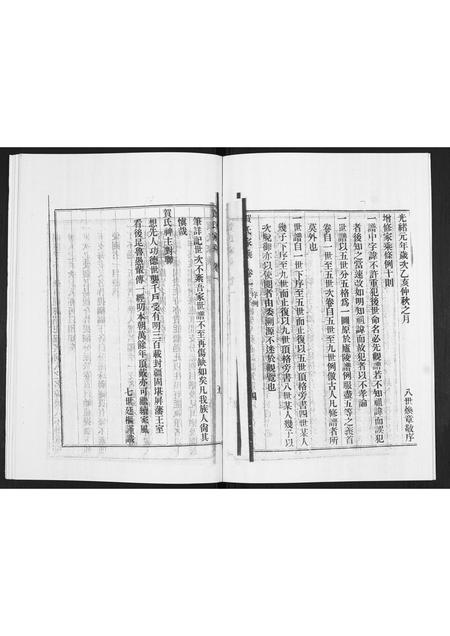 光緒元年歲次乙亥仲秋之月
八世煥章敬序
增修家乘條例十則
一譜中字諱不許重犯後世命名必先觀譜若不知祖諱而誤犯
者後知之當速改如明知祖諱而故犯者以不孝論
一世譜以五世分五格為一圖原於廬陵譜例服盡五等之義首
卷自一世至五世次卷自五世至九世例倣古人凡修譜者所
莫外也
一世譜自一世下序至五世而止復以五世頂格旁書四世某人
幾子下序至九世而止復以九世頂格旁書八世某人幾子以
次
覽也
賀氏家乘 卷一 序例 四
筆註記世次不紊吾家世譜不至再傷缺如矣凡我族人尚其
慎哉
賀氏神主對聯
想先人功德世襲千戶受有明三百載封疆固堪屏藩王室
看後昆
傳一經明本朝萬餘年頂戴亦可繼續家風
七世廷樞謹識